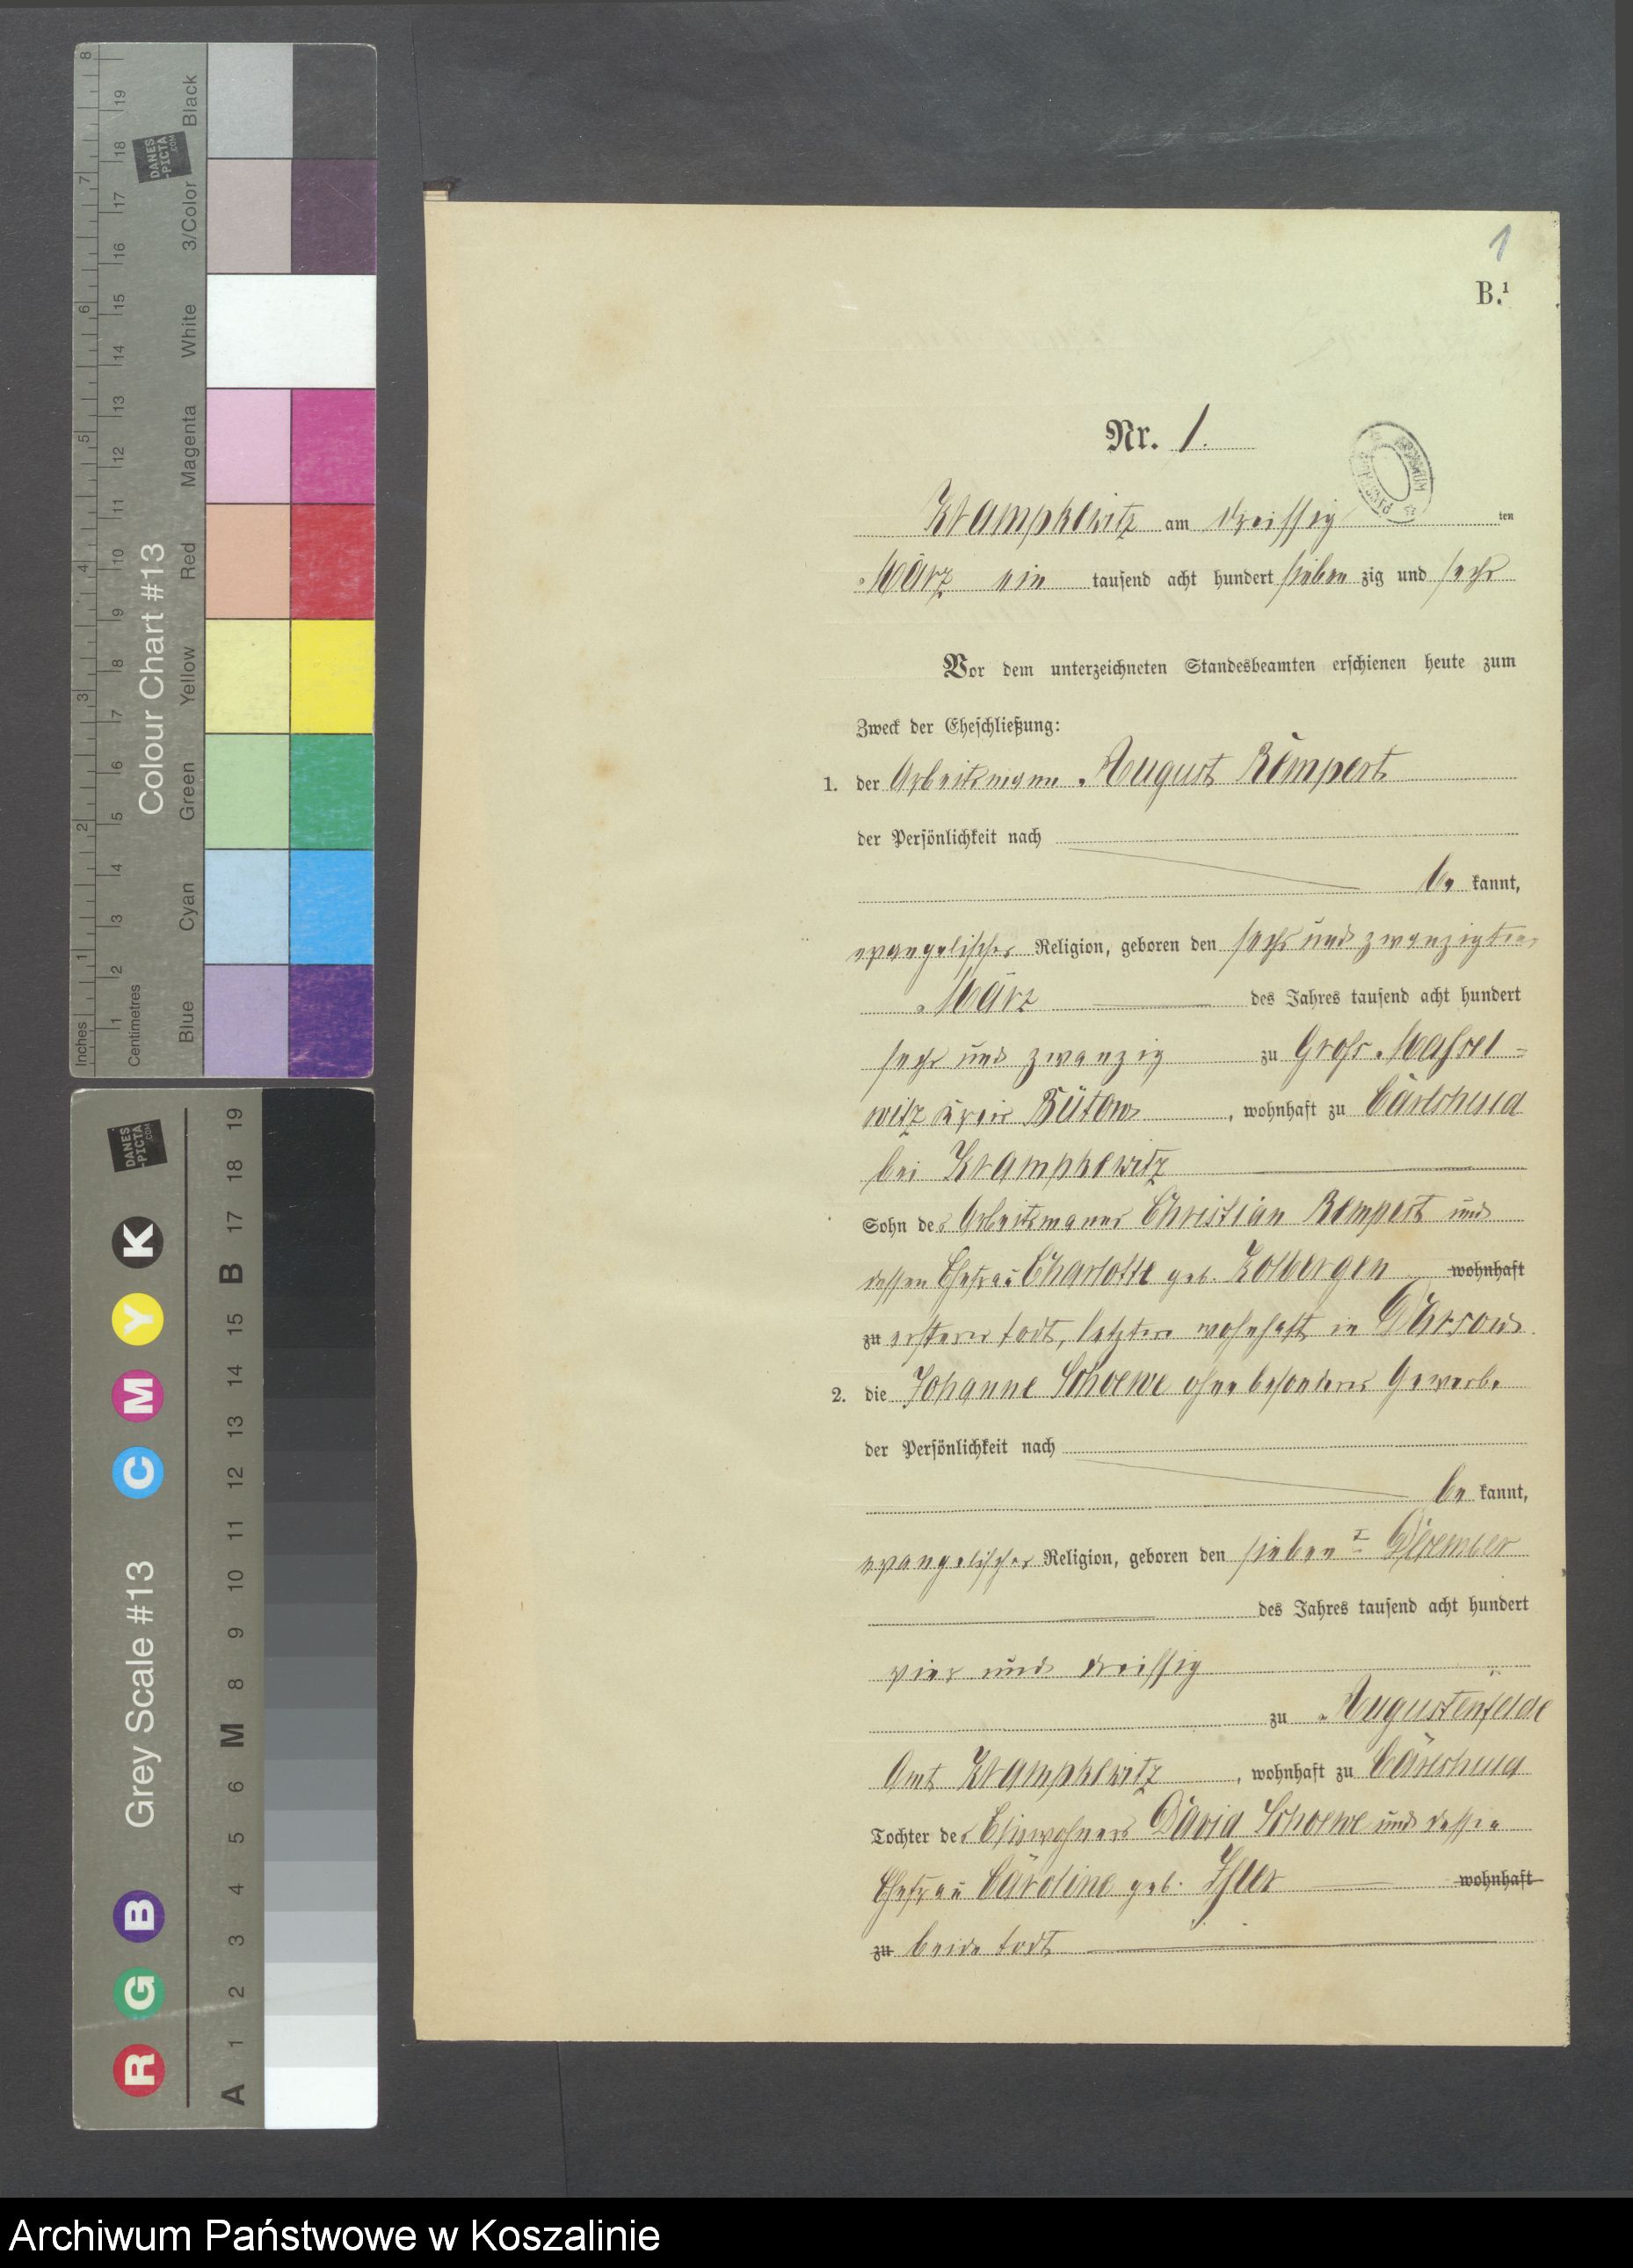 8
19
18
7
17
16
6
15
14
13
5
12
11
4
10
9
3
8
7
6
2
5
4
1
3
2
1
Inches
Centimetres
Colour Chart #13
DANES
-PICTA
.COM
Black
3/Color
White
Magenta
Red
Yellow
Green
Cyan
Blue
DANES
-PICTA
.COM
Grey Scale #13
R G B C M Y K
A 1 2 3 4 5 6 M 8 9 10 11 12 13 14 15 B 17 18 19
1
B.¹
Nr. 1.
Krampkewitz am dreissig ten
März ein tausend acht hundert sieben zig und sechs
Vor dem unterzeichneten Standesbeamten erschienen heute zum
Zweck der Eheschließung:
1. der Arbeitsmann August Rempert
der Persönlichkeit nach
be kannt,
evangelischer Religion, geboren den sechs und zwanzigsten
März des Jahres tausend acht hundert
sechs und zwanzig zu Gross
witz Kreis Bütow, wohnhaft zu Carlshuld
bei Krampkewitz
Sohn des Arbeitsmanns Christian Rempert und
dessen Ehefrau Charlotte geb. Kolbergen wohnhaft
zu ersterer todt, letztere wohnhaft in Darsow
2. die Johanne Schoewe ohne besonderes Gewerbe
der Persönlichkeit nach
be kannt,
evangelischer Religion, geboren den sieben December
des Jahres tausend acht hundert
vier und dreissig
zu Augustenfelde
Amt Krampkewitz, wohnhaft zu Carlshuld
Tochter des Einwohners David Schoewe und dessen
Ehefrau Caroline geb. wohnhaft
zu beide todt
Archiwum Państwowe w Koszalinie